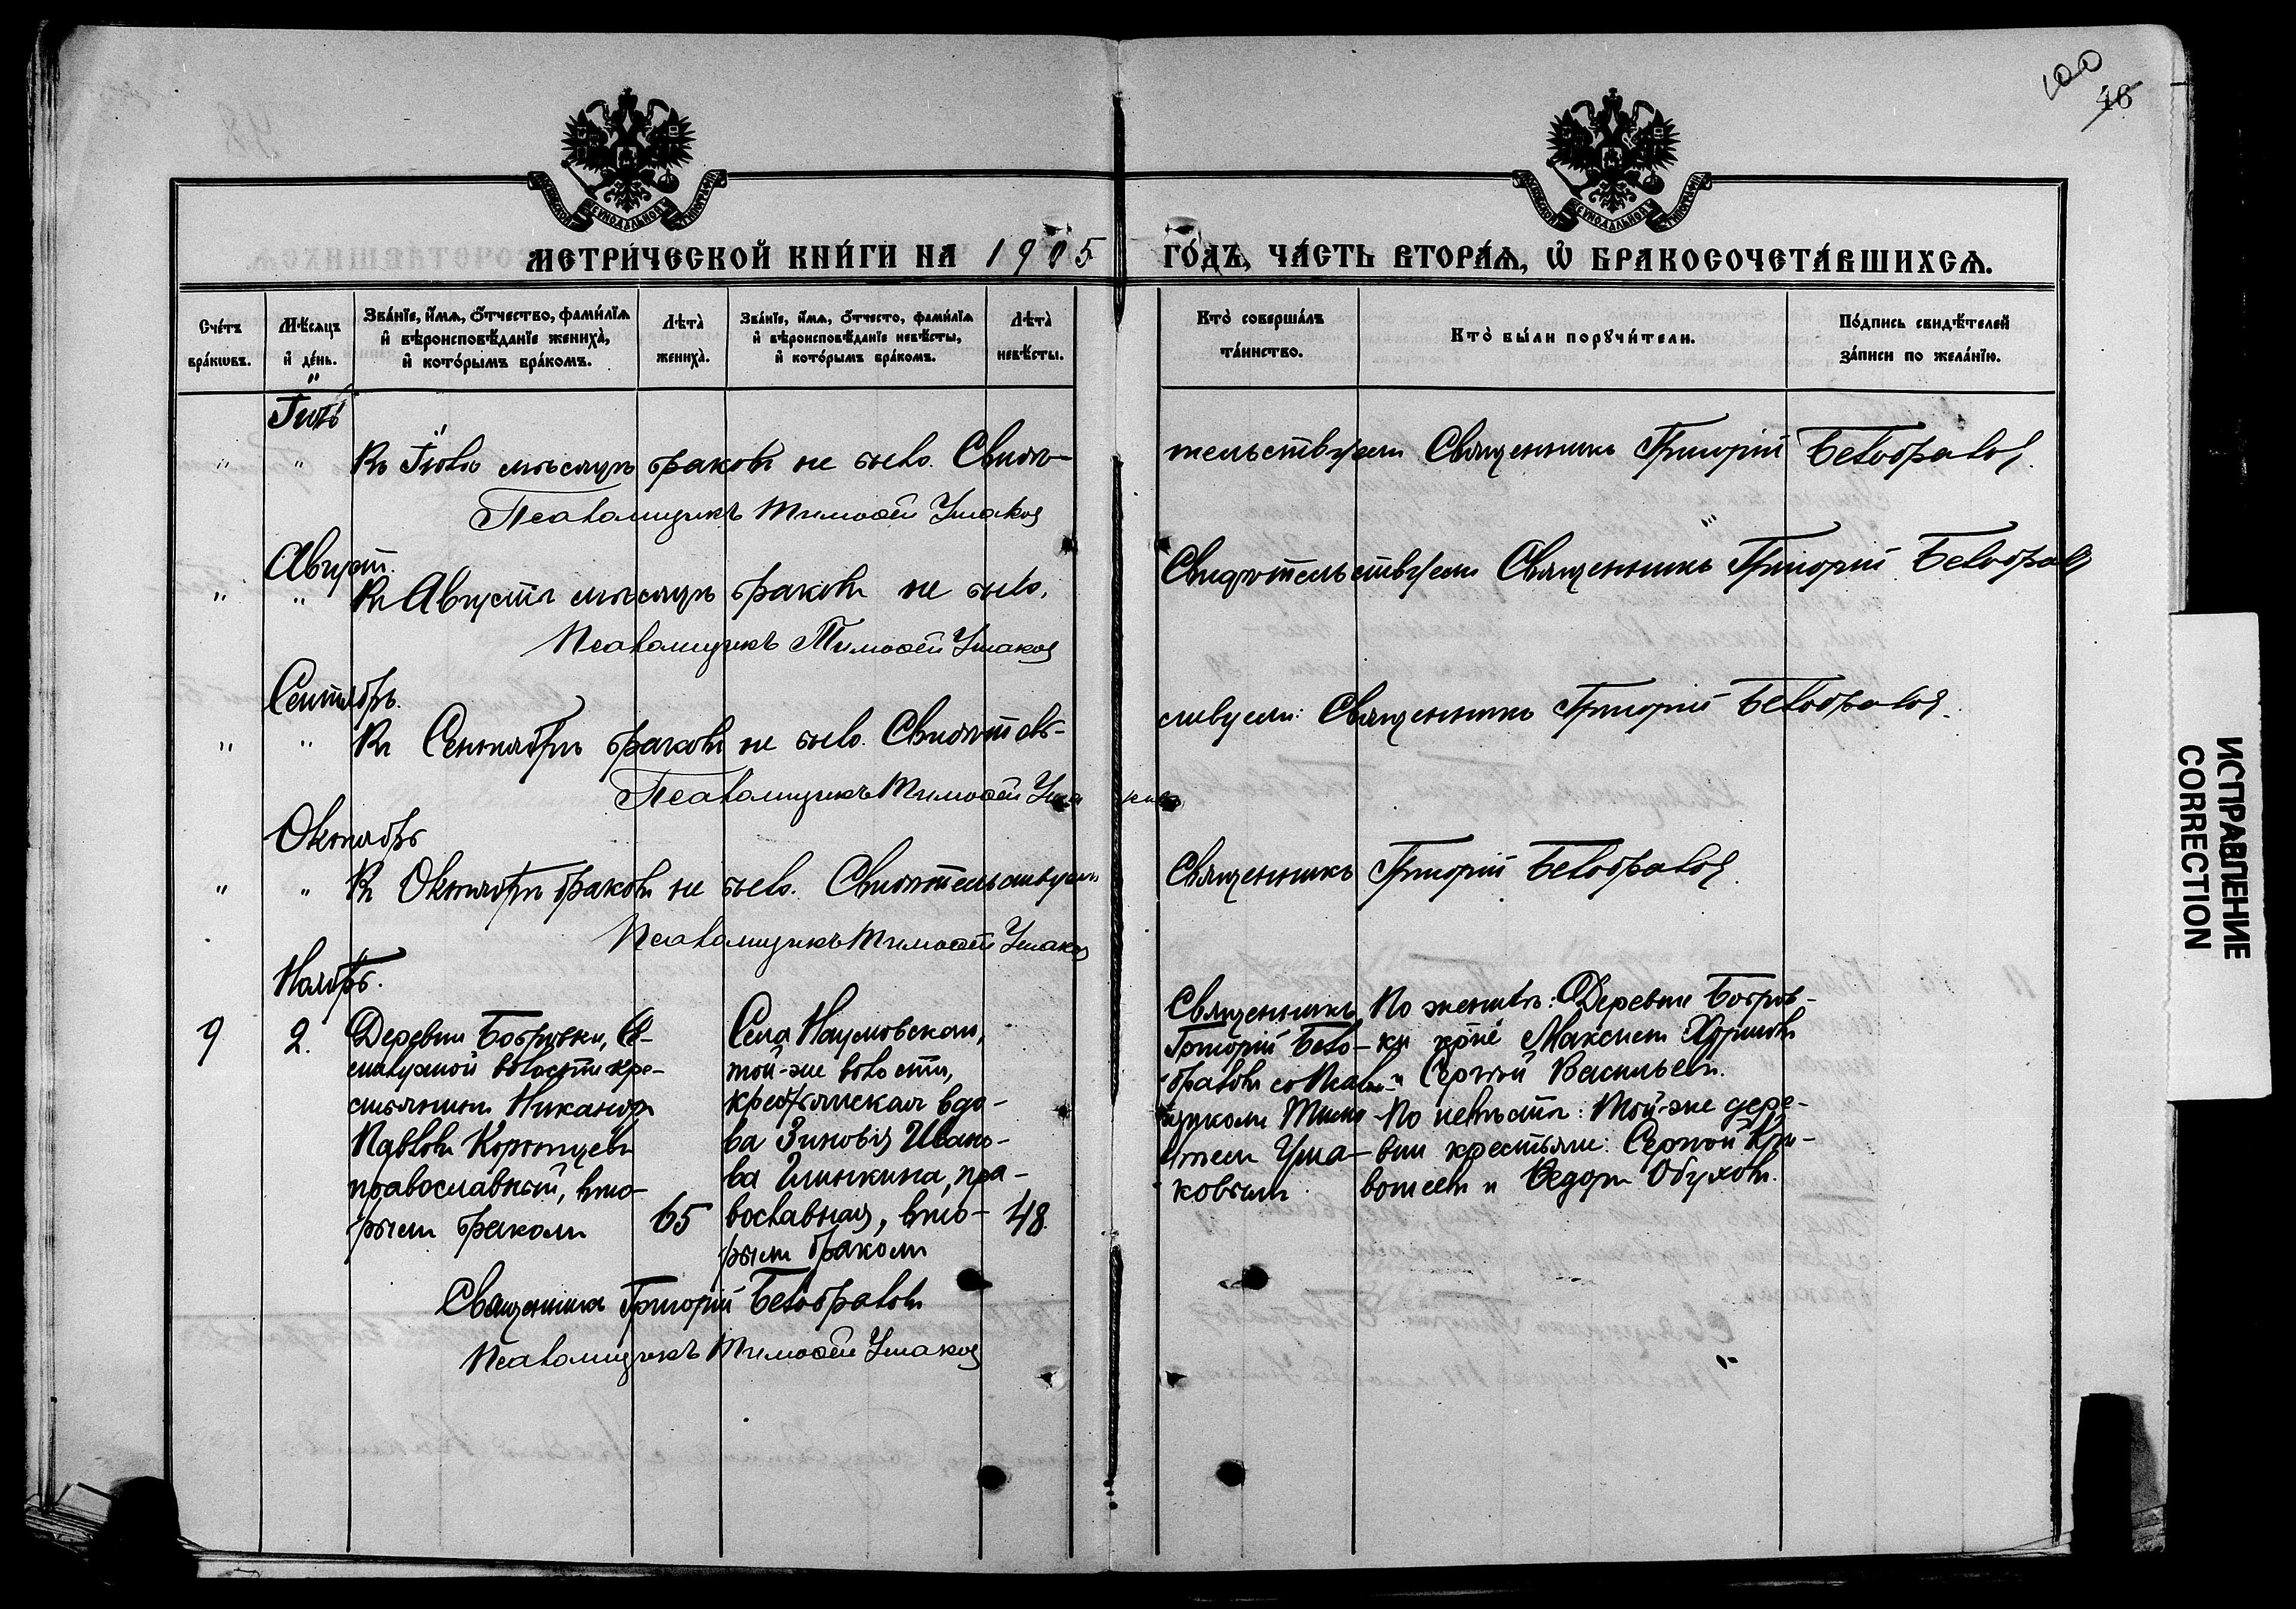 100
46
МОСКОВСКОЙ СѴНОДАЛЬНОЙ ТИПОГРАФІИ
МОСКОВСКОЙ СѴНОДАЛЬНОЙ ТИПОГРАФІИ
МЕТРИ́ЧЕСКОЙ КНИ́ГИ НА 1905 ГО́ДЪ, ЧА́СТЬ ВТОРА́Ѧ, Ѽ БРАКОСОЧЕТА́ВШИХСѦ.
Сче́тъ бра́кѡвъ.
Мѣ́сѧцъ и҆ де́нь.
Зва́нїе, и҆́мѧ, о҆́тчество, фами́лїѧ и҆ вѣроисповѣ́данїе жениха̀, и҆ кото́рымъ бра́комъ.
Лѣта̀ жениха̀.
Зва́нїе, и҆́мѧ, о҆́тчесто, фами́лїѧ и҆ вѣроисповѣ́данїе невѣ́сты, и҆ кото́рымъ бра́комъ.
Лѣта̀ невѣ́сты.
Кто̀ соверша́лъ та́инство.
Кто̀ бы́ли порꙋчи́тели.
По́дпись свидѣ́телей за́писи по жела́нїю.
Іюль
" " Въ Іюлѣ мѣсяцѣ браковъ не было. Свидѣтельствуемъ Священникъ Григорій Белобраговъ
Псаломщикъ Тимофей Ушаковъ
Августъ.
" " Въ Августѣ мѣсяцѣ браковъ не было. Свидѣтельствуемъ Священникъ Григорій
Псаломщикъ Тимофей Ушаковъ
Сентябрь.
" " Въ Сентябрѣ браковъ не было. Свидѣтель-ствуемъ: Священникъ Григорій
Псаломщикъ Тимофей Ушаковъ
Октябрь
" " Въ Октябрѣ браковъ не было. Свидѣтельствуемъ Священникъ Григорій
Псаломщикъ Тимофей Ушаковъ
Ноябрь.
9
2.
Деревни Бобровки,
волости кре-
стьянинъ Никаноръ
Павловъ
православный, вто-
рымъ бракомъ
65
Села Наумовскаго,
той-же волости,
крестьянская вдо-
ва Зиновія Ивано-
ва Глинкина, пра-
вославная, вто-
рымъ бракомъ
48.
Священникъ
Григорій
съ Псалом-
щикомъ Тимо-
феемъ Уша-
ковымъ
По женихѣ: Деревни Бобров-
ки кр-не Максимъ
и Сергѣй Васильевъ.
По невѣстѣ: Той-же дере-
вни крестьяне: Сергѣй
и Ѳедоръ Обуховъ.
Священникъ Григорій
Псаломщикъ Тимофей Ушаковъ
ИСПРАВЛЕНИЕ
CORRECTION